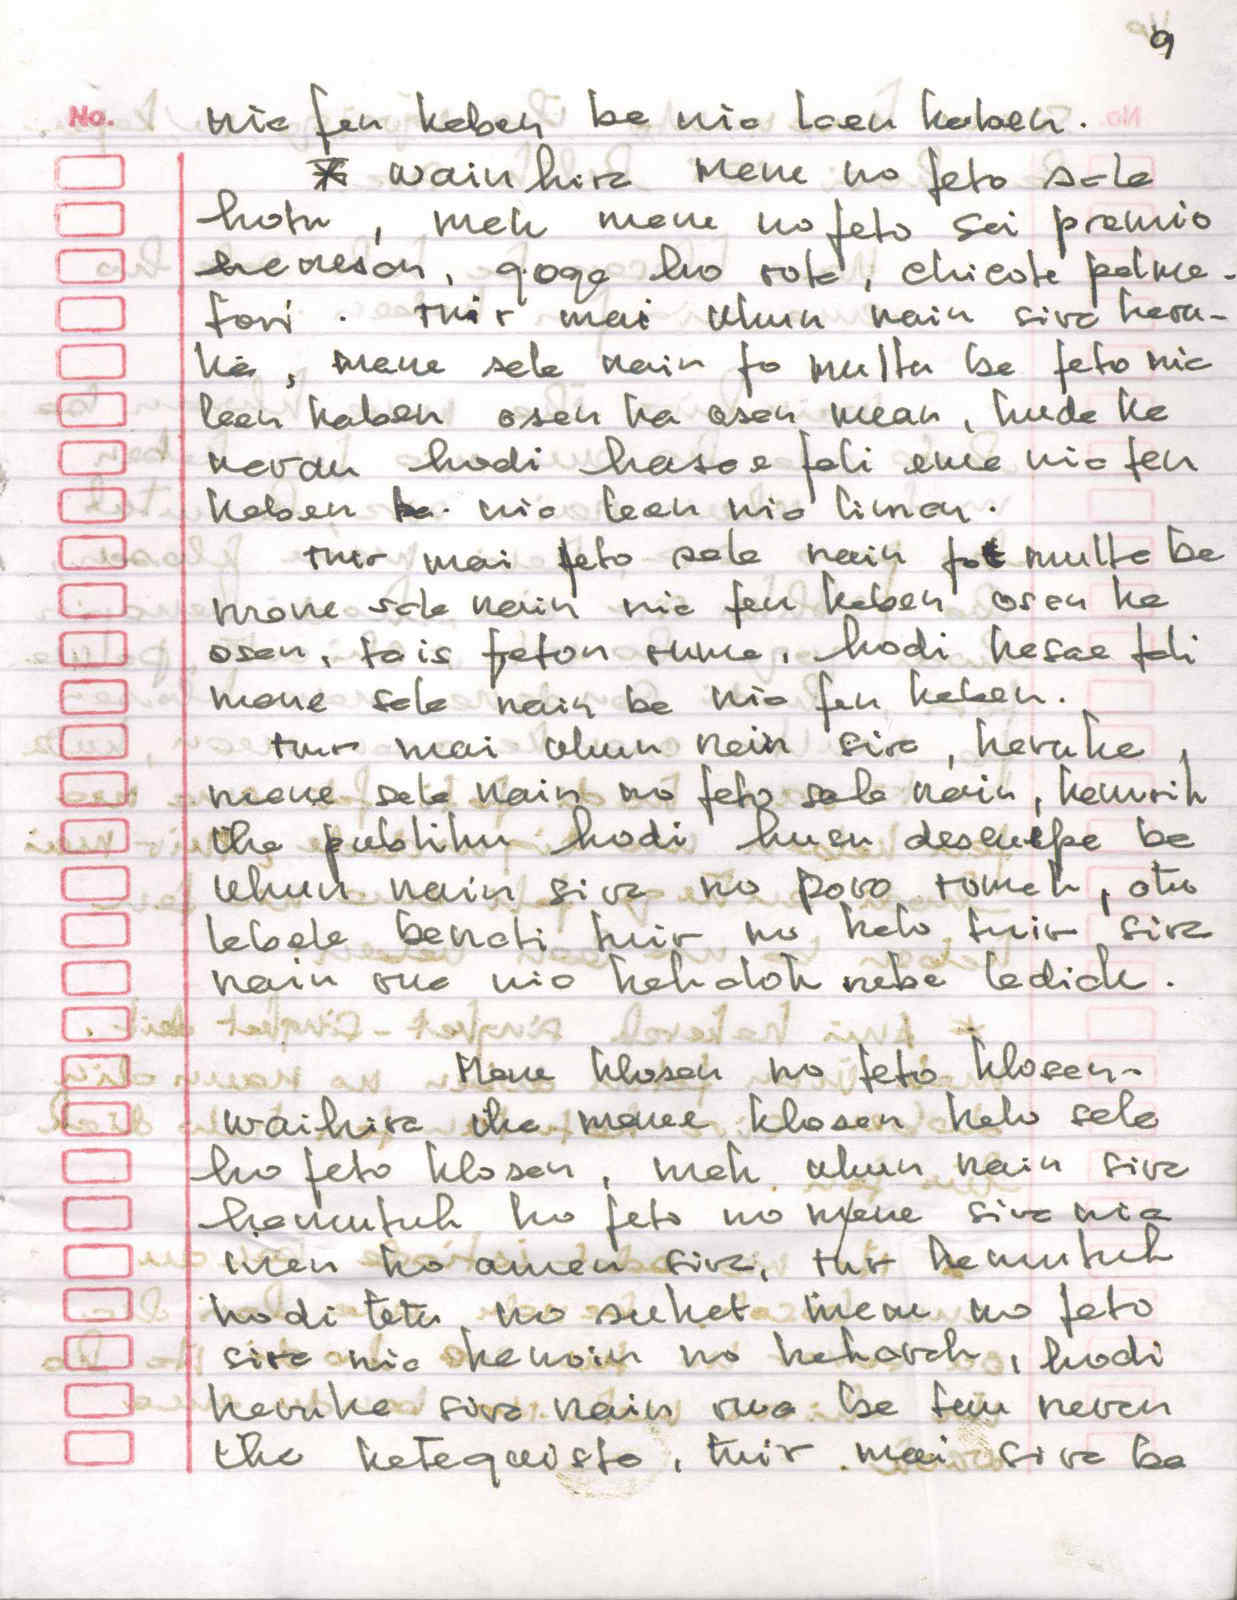 9
No.
nia fen kaben ba nia laen kaben.
wainhira mane no feto sala
hotu, mak mane no feto sei premio
hanesan, goga ho rota, chicote palma-
tori. Tuir mai ukun nain sira haru-
ka, mane sala nain fo multa ba feto nia
laen kaben osan ka osan mean, kuda ka
karau hodi hasae fali ema nia fen
kaben ba nia laen nia liman.
tuir mai feto sala nain fo multa ba
mane sala nain nia fen kaben osan ka
osan, tais feton ruma, hodi hasae fali
mane sala nain ba nia fen kaben.
tuir mai ukun nain sira, haruka,
mane sala nain no feto sala nain, hamrik
iha publiku hodi husu desculpa ba
ukun nain sira no povo tomak, atu
labele banati tuir no halo tuir sira
nain rua nia hahalok nebe ladiak.
Mane klosan no feto klosan-
waihira iha mane klosan halo sala
ho feto klosan, mak ukun nain sira
hamutuk ho feto no mane sira nia
inan ho aman sira, tur hamutuk
hodi tetu no suket mane no feto
sira nia hanoin no hakarak, hodi
haruka sira nain rua ba tau naran
iha katequista, tuir mai sira ba